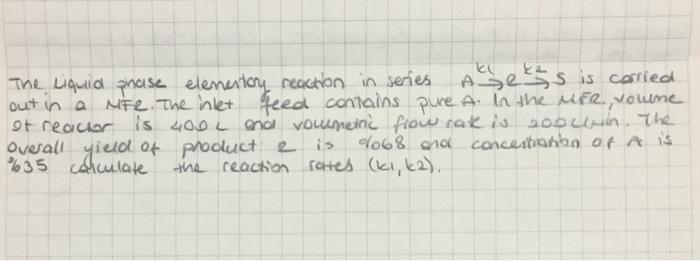 k1 k2
The Liquid phase elementary reaction in series A → R → S is carried
out in a MFR. The inlet feed contains pure A. In the MFR, volume
of reactor is 400 L and voumetric flow rate is 200 L/min. The
overall yield of product R is %68 and concentration of A is
%35 calculate the reaction rates (k1, k2).